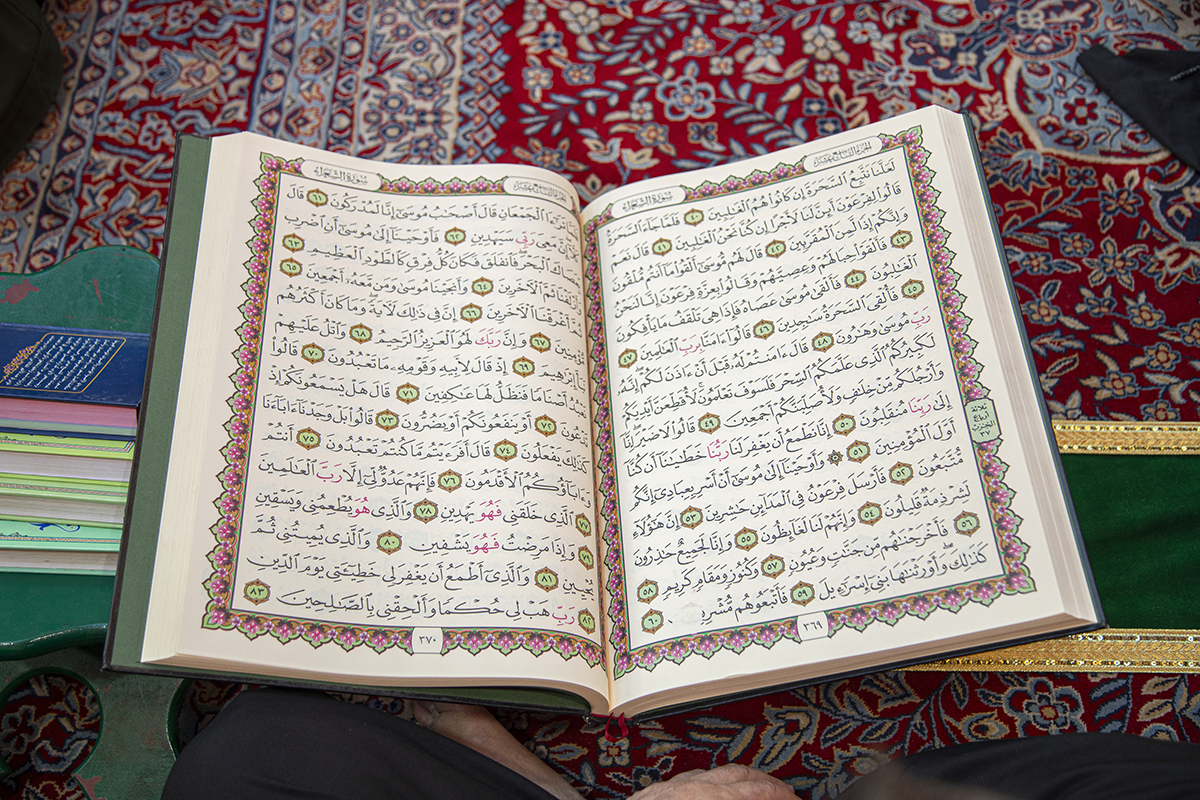 الجزء التاسع عشر
سورة الشعراء
لَعَلَّنَا نَتَّبِعُ ٱلسَّحَرَةَ إِن كَانُوا۟ هُمُ ٱلْغَٰلِبِينَ ٤٠ فَلَمَّا جَآءَ ٱلسَّحَرَةُ
قَالُوا۟ لِفِرْعَوْنَ أَئِنَّ لَنَا لَأَجْرًا إِن كُنَّا نَحْنُ ٱلْغَٰلِبِينَ ٤١ قَالَ نَعَمْ
وَإِنَّكُمْ إِذًا لَّمِنَ ٱلْمُقَرَّبِينَ ٤٢ قَالَ لَهُم مُّوسَىٰٓ أَلْقُوا۟ مَآ أَنتُم مُّلْقُونَ
٤٣ فَأَلْقَوْا۟ حِبَالَهُمْ وَعِصِيَّهُمْ وَقَالُوا۟ بِعِزَّةِ فِرْعَوْنَ إِنَّا لَنَحْنُ
ٱلْغَٰلِبُونَ ٤٤ فَأَلْقَىٰ مُوسَىٰ عَصَاهُ فَإِذَا هِىَ تَلْقَفُ مَا يَأْفِكُونَ
٤٥ فَأُلْقِىَ ٱلسَّحَرَةُ سَٰجِدِينَ ٤٦ قَالُوٓا۟ ءَامَنَّا بِرَبِّ ٱلْعَٰلَمِينَ ٤٧
رَبِّ مُوسَىٰ وَهَٰرُونَ ٤٨ قَالَ ءَامَنتُمْ لَهُۥ قَبْلَ أَنْ ءَاذَنَ لَكُمْ إِنَّهُۥ
لَكَبِيرُكُمُ ٱلَّذِى عَلَّمَكُمُ ٱلسِّحْرَ فَلَسَوْفَ تَعْلَمُونَ لَأُقَطِّعَنَّ أَيْدِيَكُمْ
وَأَرْجُلَكُم مِّنْ خِلَٰفٍ وَلَأُصَلِّبَنَّكُمْ أَجْمَعِينَ ٤٩ قَالُوا۟ لَا ضَيْرَ إِنَّآ
إِلَىٰ رَبِّنَا مُنقَلِبُونَ ٥٠ إِنَّا نَطْمَعُ أَن يَغْفِرَ لَنَا رَبُّنَا خَطَٰيَٰنَآ أَن كُنَّآ
أَوَّلَ ٱلْمُؤْمِنِينَ ٥١ ۞ وَأَوْحَيْنَآ إِلَىٰ مُوسَىٰٓ أَنْ أَسْرِ بِعِبَادِىٓ إِنَّكُم
مُّتَّبَعُونَ ٥٢ فَأَرْسَلَ فِرْعَوْنُ فِى ٱلْمَدَآئِنِ حَٰشِرِينَ ٥٣ إِنَّ هَٰٓؤُلَآءِ
لَشِرْذِمَةٌ قَلِيلُونَ ٥٤ وَإِنَّهُمْ لَنَا لَغَآئِظُونَ ٥٥ وَإِنَّا لَجَمِيعٌ حَٰذِرُونَ
٥٦ فَأَخْرَجْنَٰهُم مِّن جَنَّٰتٍ وَعُيُونٍ ٥٧ وَكُنُوزٍ وَمَقَامٍ كَرِيمٍ ٥٨
كَذَٰلِكَ وَأَوْرَثْنَٰهَا بَنِىٓ إِسْرَٰٓءِيلَ ٥٩ فَأَتْبَعُوهُم مُّشْرِقِينَ ٦٠
ثلاثة
أرباع
الحزب
٣٧
٣٦٩
سورة الشعراء
ٱلْجَمْعَانِ قَالَ أَصْحَٰبُ مُوسَىٰٓ إِنَّا لَمُدْرَكُونَ ٦١ قَالَ
مَعِىَ رَبِّى سَيَهْدِينِ ٦٢ فَأَوْحَيْنَآ إِلَىٰ مُوسَىٰٓ أَنِ ٱضْرِب
ٱلْبَحْرَ فَٱنفَلَقَ فَكَانَ كُلُّ فِرْقٍ كَٱلطَّوْدِ ٱلْعَظِيمِ ٦٣
ثَمَّ ٱلْءَاخَرِينَ ٦٤ وَأَنجَيْنَا مُوسَىٰ وَمَن مَّعَهُۥٓ أَجْمَعِينَ ٦٥
ثُمَّ أَغْرَقْنَا ٱلْءَاخَرِينَ ٦٦ إِنَّ فِى ذَٰلِكَ لَءَايَةً وَمَا كَانَ أَكْثَرُهُم
٦٧ وَإِنَّ رَبَّكَ لَهُوَ ٱلْعَزِيزُ ٱلرَّحِيمُ ٦٨ وَٱتْلُ عَلَيْهِمْ
إِبْرَٰهِيمَ ٦٩ إِذْ قَالَ لِأَبِيهِ وَقَوْمِهِۦ مَا تَعْبُدُونَ ٧٠ قَالُوا۟
نَعْبُدُ أَصْنَامًا فَنَظَلُّ لَهَا عَٰكِفِينَ ٧١ قَالَ هَلْ يَسْمَعُونَكُمْ إِذْ
تَدْعُونَ ٧٢ أَوْ يَنفَعُونَكُمْ أَوْ يَضُرُّونَ ٧٣ قَالُوا۟ بَلْ وَجَدْنَآ ءَابَآءَنَا
كَذَٰلِكَ يَفْعَلُونَ ٧٤ قَالَ أَفَرَءَيْتُم مَّا كُنتُمْ تَعْبُدُونَ ٧٥ أَنتُمْ
وَءَابَآؤُكُمُ ٱلْأَقْدَمُونَ ٧٦ فَإِنَّهُمْ عَدُوٌّ لِّىٓ إِلَّا رَبَّ ٱلْعَٰلَمِينَ
٧٧ ٱلَّذِى خَلَقَنِى فَهُوَ يَهْدِينِ ٧٨ وَٱلَّذِى هُوَ يُطْعِمُنِى وَيَسْقِينِ
وَإِذَا مَرِضْتُ فَهُوَ يَشْفِينِ ٨٠ وَٱلَّذِى يُمِيتُنِى ثُمَّ
يُحْيِينِ ٨١ وَٱلَّذِىٓ أَطْمَعُ أَن يَغْفِرَ لِى خَطِيٓـَٔتِى يَوْمَ ٱلدِّينِ
٨٢ رَبِّ هَبْ لِى حُكْمًا وَأَلْحِقْنِى بِٱلصَّٰلِحِينَ ٨٣
٣٧٠